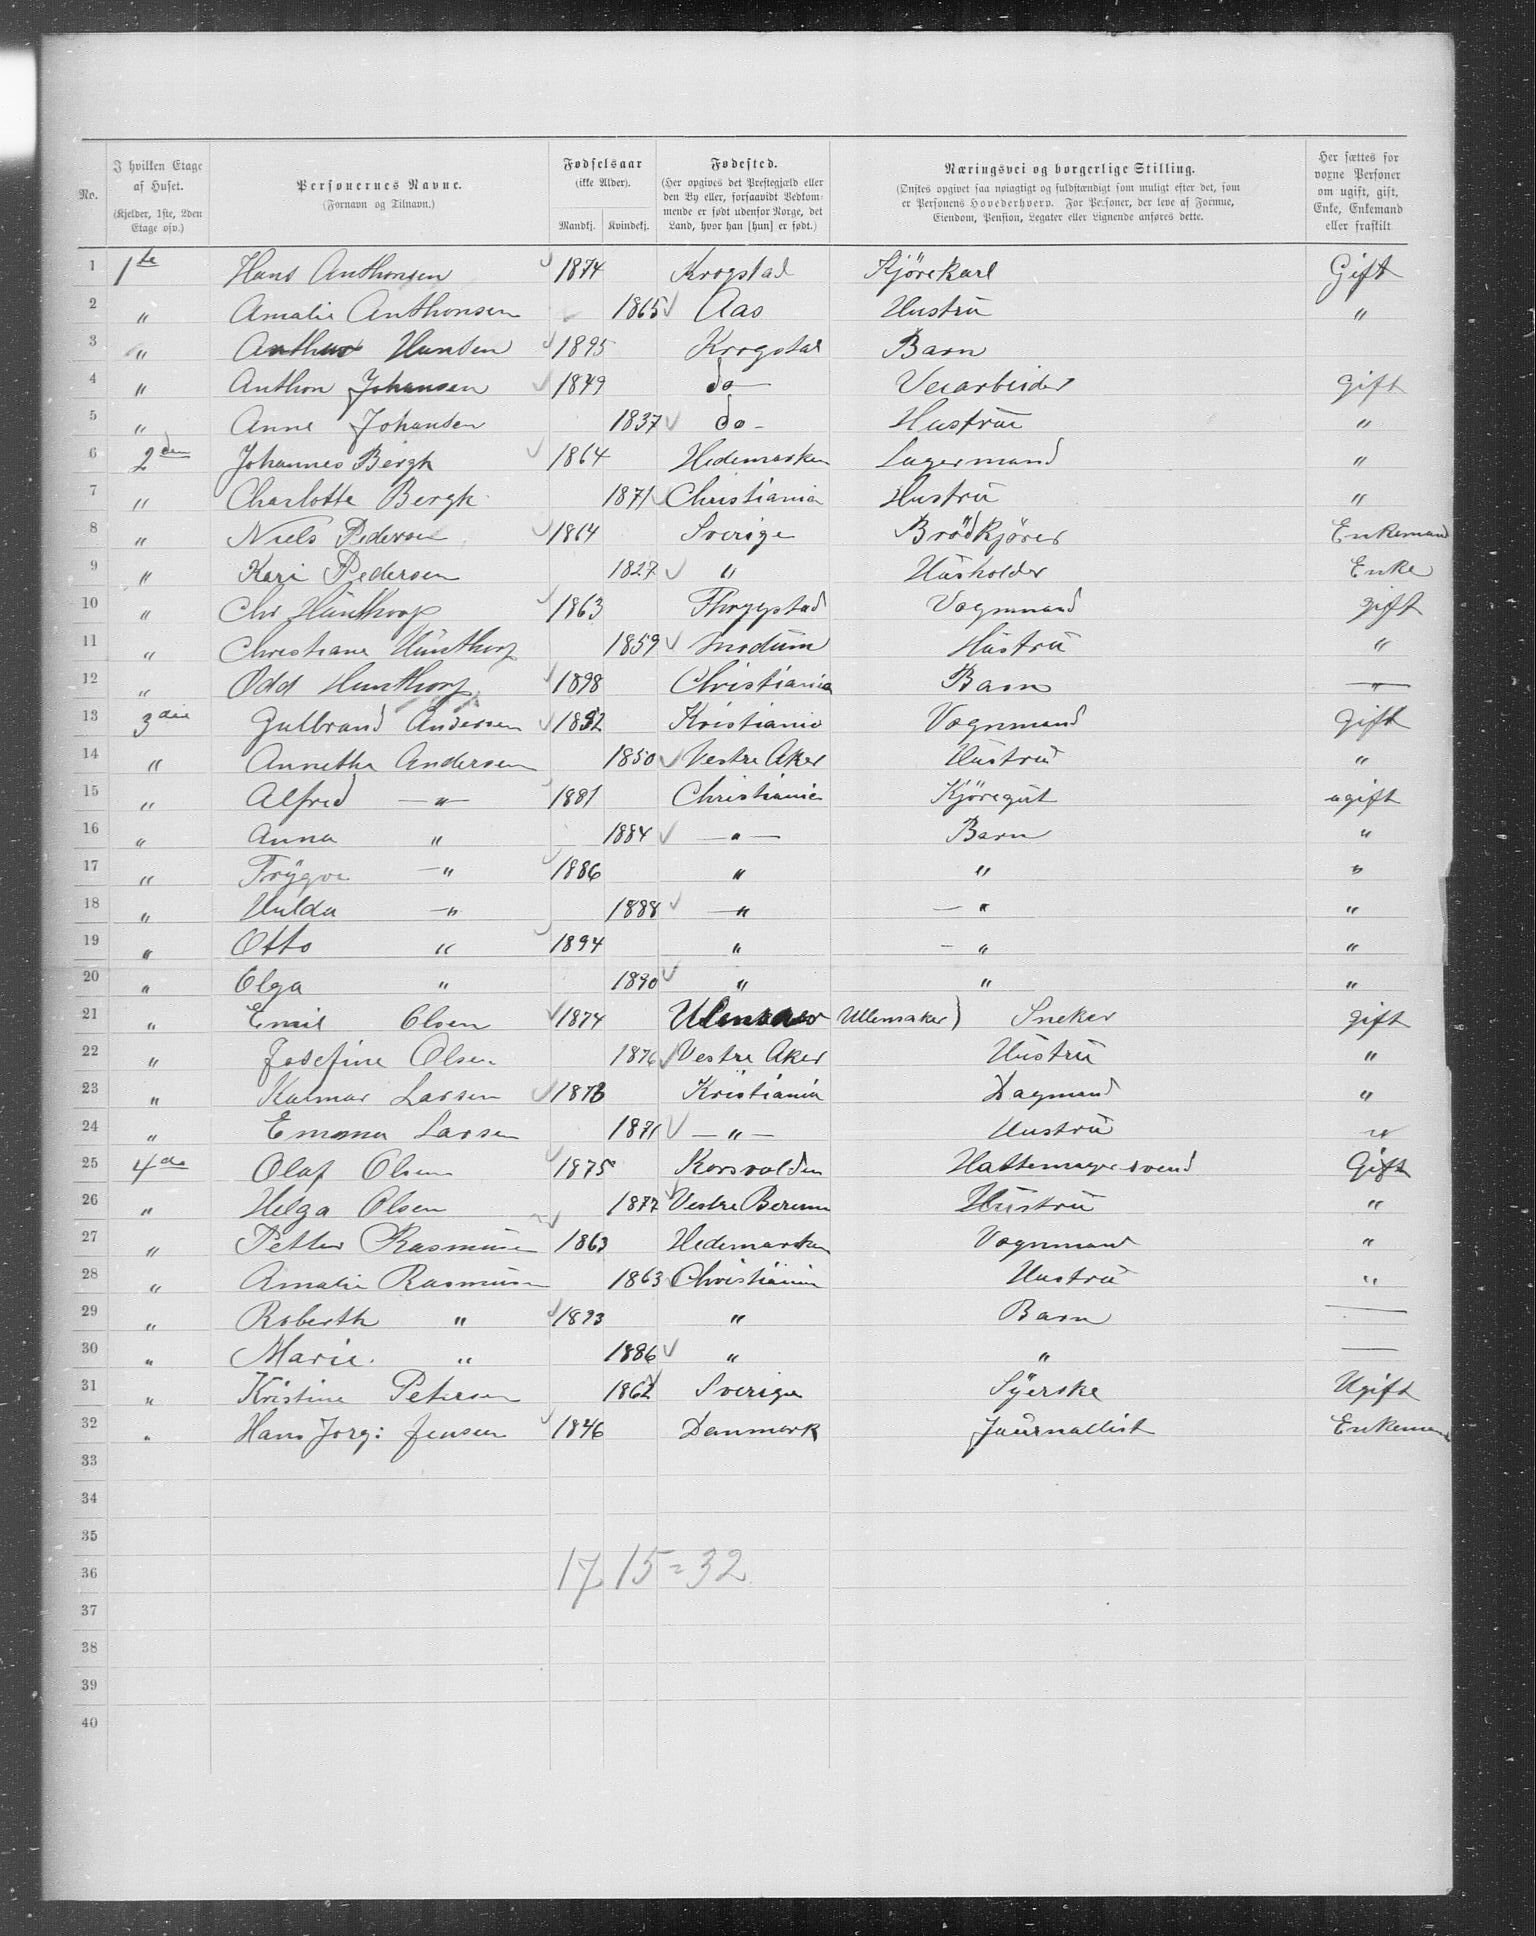 No. | I hvilken Etage af Huset. (Kjelder, 1ste, 2den Etage osv.) | Personernes Navne. (Fornavn og Tilnavn.) | Fødselsaar (ikke Alder). Mandkj. Kvindekj. | Fødested. (Her opgives det Prestegjæld eller den By eller, forsaavidt Vedkommende er født udenfor Norge, det Land, hvor han [hun] er født.) | Næringsvei og borgerlige Stilling. (Ønskes opgivet saa nøiagtigt og fuldstændigt som muligt efter det, som er Personens Hovederhverv. For Personer, der leve af Formue, Eiendom, Pension, Legater eller Lignende anføres dette. | Her sættes for voxne Personer om ugift, gift, Enke, Enkemand eller fraskilt
1 1te Hans Anthonsen 1874 Krogstad Kjørekarl Gift
2 " Amalie Anthonsen 1865 Aas Hustrü "
3 " Hansen 1895 Krogstad Barn
4 " Anthon Johansen 1849 do Veiarbeider gift
5 " Anne Johansen 1837 do Hustrü "
6 2den Johannes Bergh 1864 Hedemarken Lagermand "
7 " Charlotte Bergh 1871 Christiania Hustrü "
8 " Niels Pedersen 1864 Sverige Brødkjører Enkemand
9 " Kari Pedersen 1827 " Husholder Enke
10 " Chr Hünthorp 1863 Thrygstad Vognmand gift
11 " Christiane Hünthorp 1859 Modum Hustrü "
12 " Odd Hunthorp 1898 Christiania Barn "
13 3die Gulbrand Andersen 1852 Kristiania Vognmand gift
14 " Annetha Andersen 1850 Vestre Aker Hustrü "
15 " Alfred " 1881 Christiania Kjøregut ugift
16 " Anna " 1884 " Barn "
17 " Trÿgve " 1886 " " "
18 " Hulda " 1888 " " "
19 " Otto " 1894 " " "
20 " Olga " 1890 " " "
21 " Emil Olsen 1874 Ullensaker) Sneker gift
22 " Josefine Olsen 1876 Vestre Aker Hustrü "
23 " Kalmar Larsen 1873 Kristiania Dagmand "
24 " Emma Larsen 1871 " Hustrü "
25 4de Olaf Olsen 1875 Korsvolden Hattemagersvend Gift
26 " Helga Olsen 1877 Vestre Berum Hustrü "
27 " Petter Rasmusen 1863 Hedemarken Vognmand "
28 " Amalie Rasmusen 1863 Christiania Hustrü "
29 " Roberth " 1893 " Barn
30 " Marie " 1886 " "
31 " Kristine Petersen 1862 Sverige Sÿerske Ugift
32 " Hans Jorg: Jensen 1846 Danmark Journallist Enkemand
33
34
35
36 17 15=32
37
38
39
40